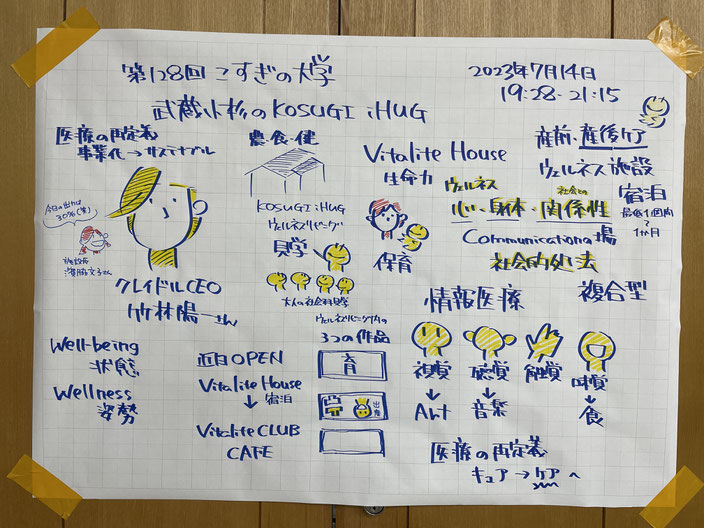 第128回 こすぎの大学
2023年7月14日
19:28-21:15
武蔵小杉のKOSUGI iHUG
医療の再定義
事業化→サステナブル
今日の出力は
30%(笑)
施設長
クレイドルCEO
竹林陽一さん
農・食・健
KOSUGI iHUG
ウェルネスリビング
見学
大人の社会科見学
Vitalite House
生命力
保育
ウェルネス
社会との
心・身体・関係性
Communicationの場
社会的処方
産前・産後ケア
ウェルネス施設
宿泊
最長1週間
1か月
複合型
情報医療
視覚
聴覚
触覚
味覚
↓
Art
↓
音楽
↓
食
ウェルネスリビング内の
3つの作品
育
Well-being
状態
Wellness
姿勢
近日OPEN
Vitalite House
↓宿泊
Vitalite CLUB
CAFE
医療の再定義
キュア→ケアへ